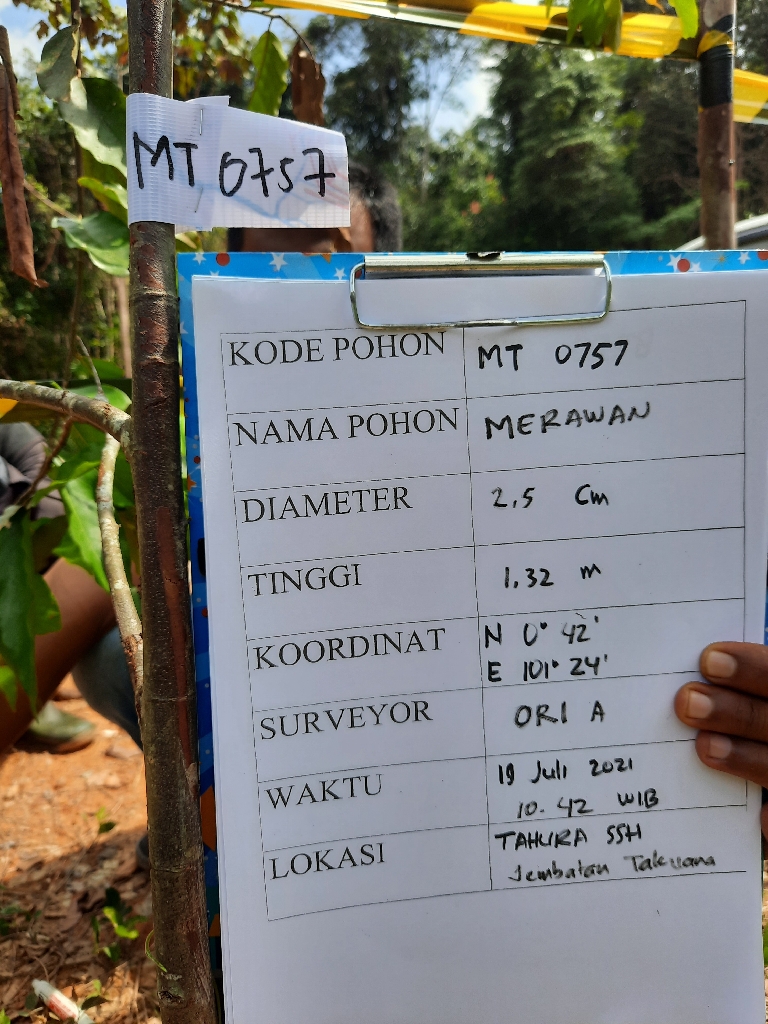 MT 0757
KODE POHON MT 0757
NAMA POHON MERAWAN
DIAMETER 2,5 Cm
TINGGI 1,32 m
KOORDINAT N 0° 42'
E 101° 24'
SURVEYOR ORI A
WAKTU 19 Juli 2021
10.42 WIB
LOKASI TAHURA SSH
Jembatan